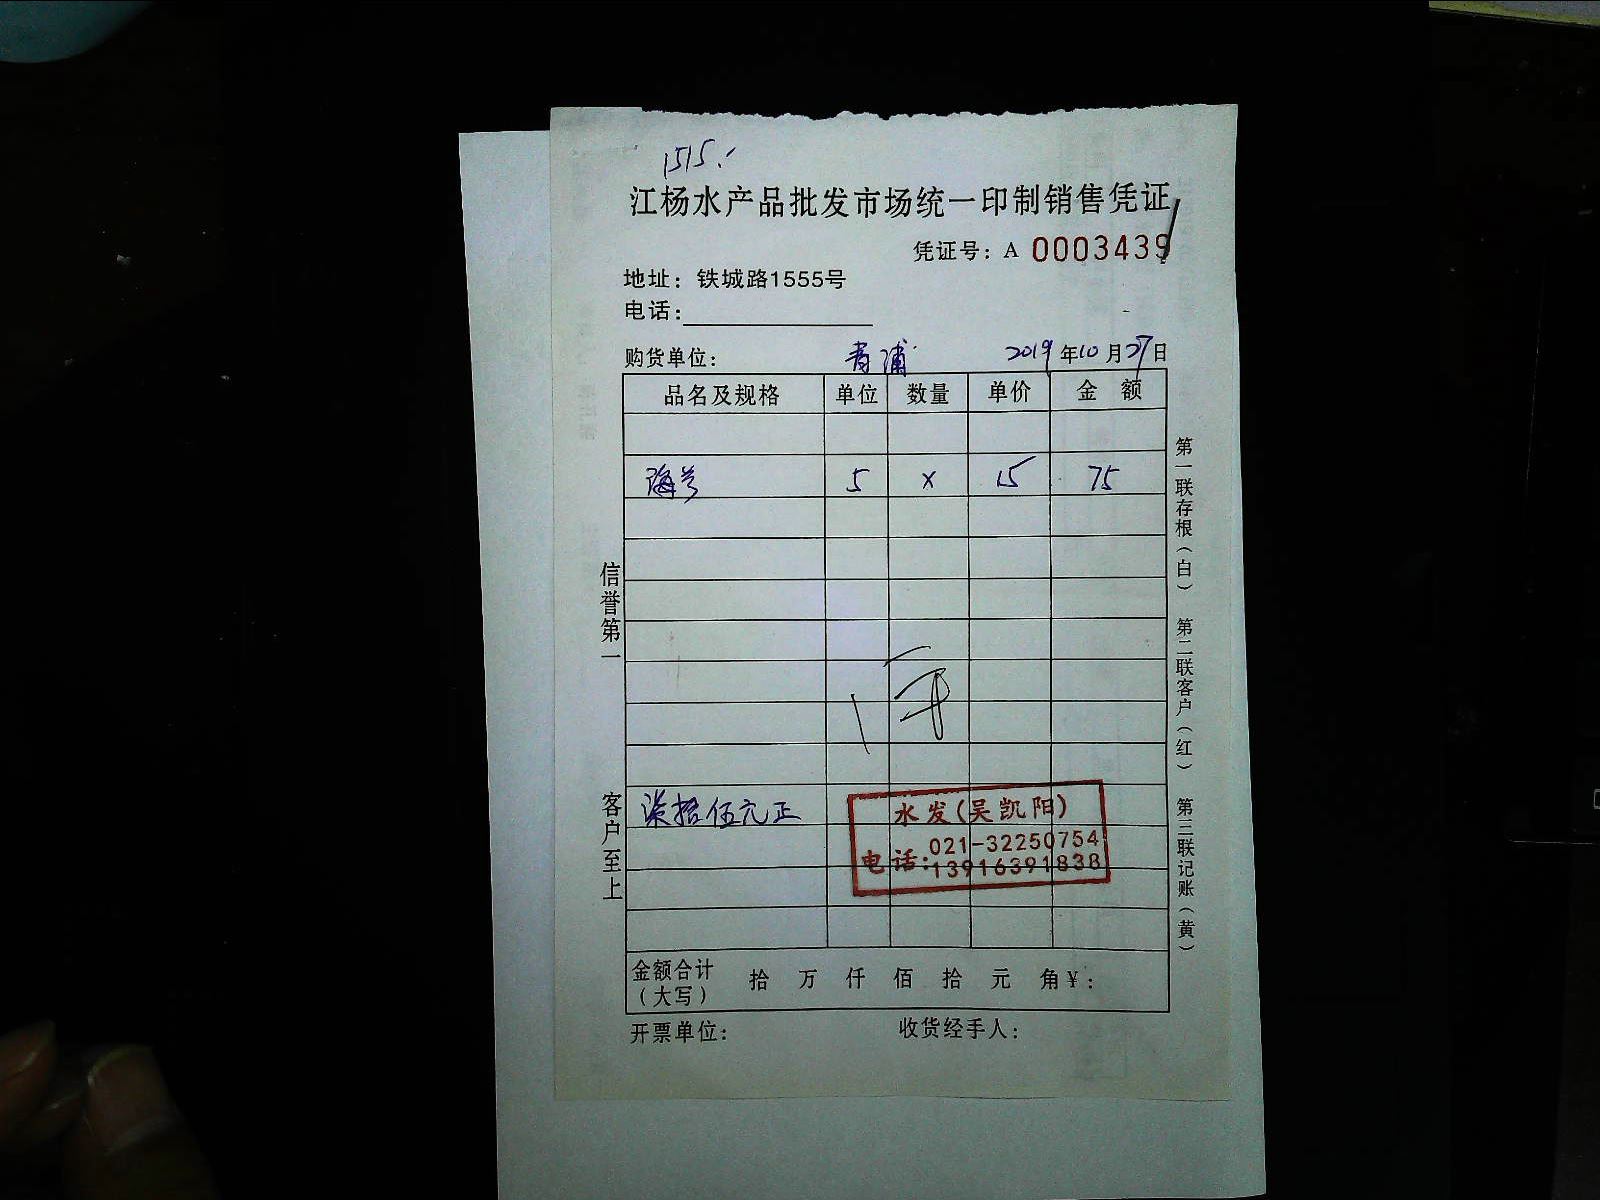 1515.
江杨水产品批发市场统一印制销售凭证
凭证号：A 0003439
地址：铁城路1555号
电话：
购货单位： 青浦 2019年10月27日
品名及规格 单位 数量 单价 金额
5 x 15 75
柒拾伍元正
水发(吴凯阳)
电话：021-32250754
13916391838
金额合计（大写） 拾 万 仟 佰 拾 元 角 ¥：
开票单位： 收货经手人：
信誉第一
客户至上
第一联存根（白）
第二联客户（红）
第三联记账（黄）